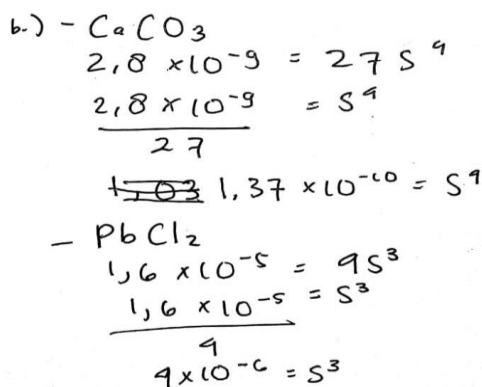 b.) - CaCO3
2,8 x10⁻⁹ = 27 S⁴
2,8 x 10⁻⁹ = S⁴
27
1,37 x10⁻¹⁰ = S⁴
- PbCl2
1,6 x10⁻⁵ = 4S³
1,6 x10⁻⁵ = S³
4
4x10⁻⁶ = S³